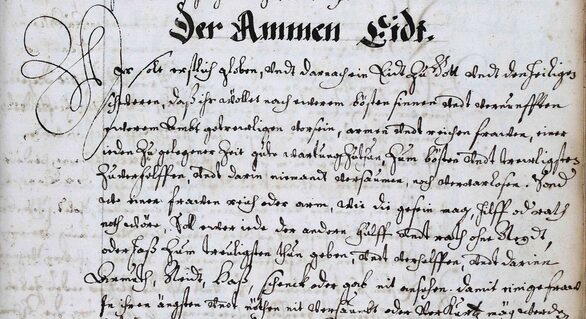 Der Ammen Eidt.
Ir solt erstlich globen, vndt darnach ein Eidt zu Gott vndt den heiligen
schweren, daß ihr wöllet nach ewerem besten sinnen vndt vernunfften
ewerem Ambt getrewlichen vorsein, armen vndt reichen frawen, einer
ieden zu gelegener Zeit gute wartung zuthun zum besten vndt trewligsten
zuverhelffen, vndt darin niemandt versaumen, noch verwarlosen. Sond
wo einer frawen reich oder arm, wie die gesein mag, hilff od rath
noth wäre, Soll ewer iede der andern hilff vndt rath ohne
oder haß zum treuligsten thun geben vndt verhelffen, vndt darinn
Neidt, Haß, schenck oder gab nit ansehen. damit ein fraw
In ihren ängsten vndt nöthen nit versaumbt oder